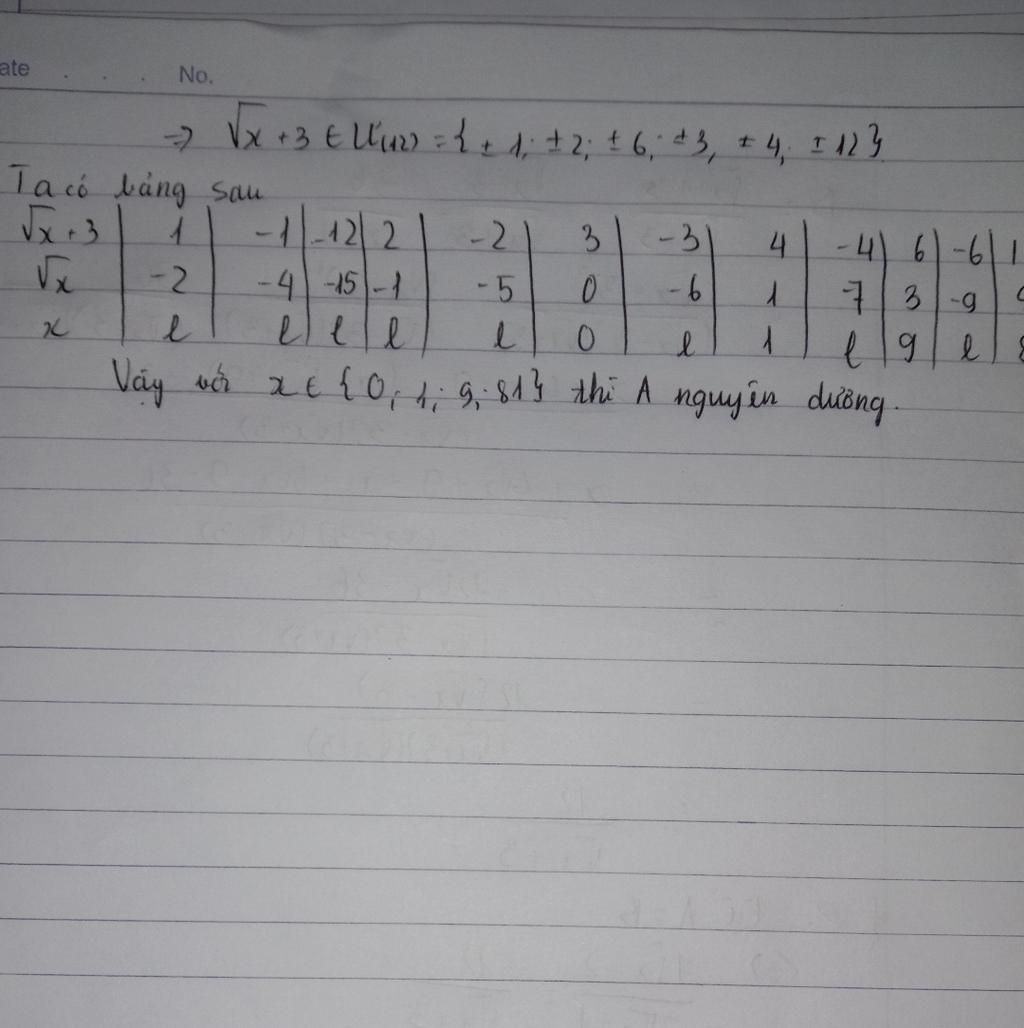 ate . . . No.
=> √x + 3 ∈ Ư(12) = { ± 1; ± 2; ± 6; ± 3, ± 4; ± 12 }
Ta có bảng sau
√x + 3 | 1 | -1 | -12 | 2 | -2 | 3 | -3 | 4 | -4 | 6 | -6 | 1
√x | -2 | -4 | -15 | -1 | -5 | 0 | -6 | 1 | -7 | 3 | -9
x | l | l | l | l | l | 0 | l | 1 | l | 9 | l | 8
Vậy với x ∈ { 0; 1; 9; 81 } thì A nguyên dương.